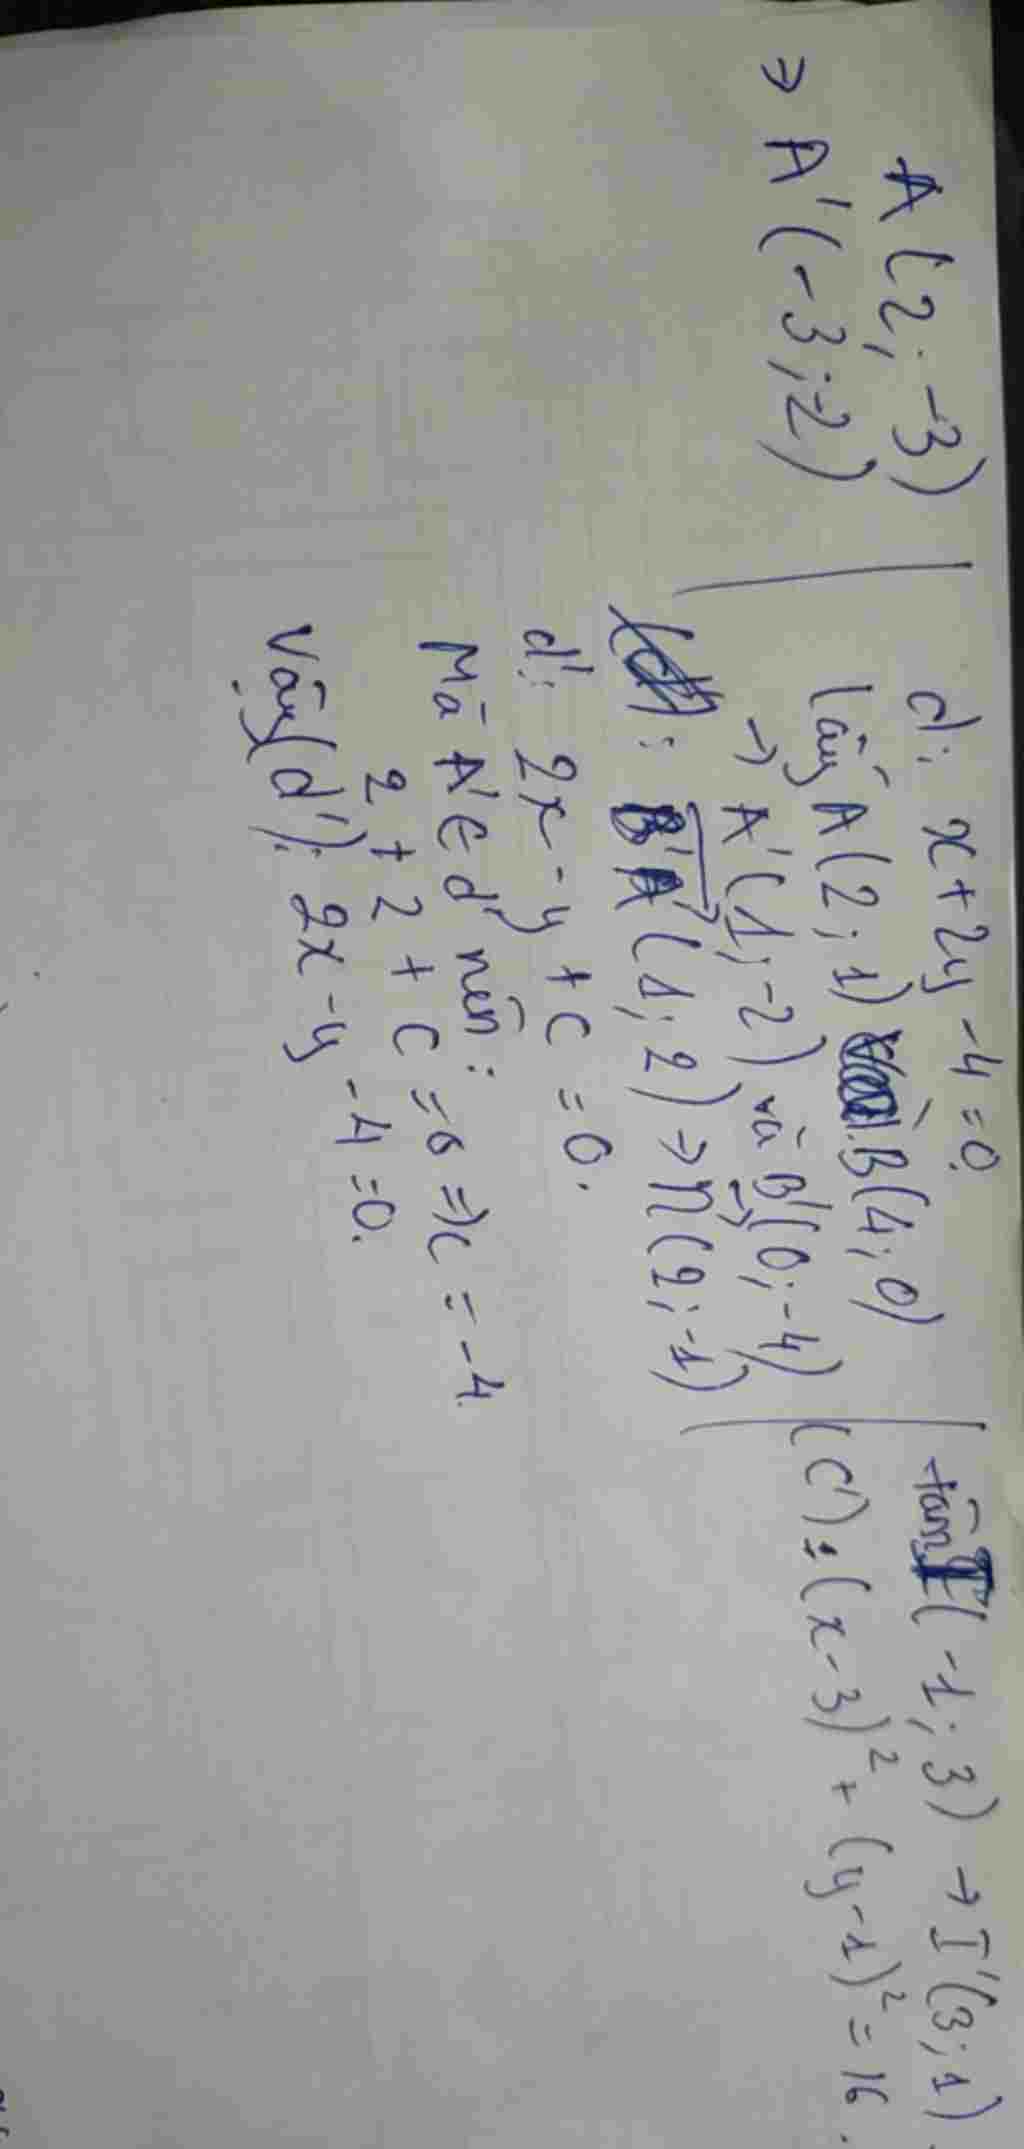 A(2; -3)
=> A'(-3; -2)
d: x + 2y - 4 = 0.
Lấy A(2; 1) B(4; 0)
-> A'(1; -2) và B'(0; -4)
: B'A'(1; 2) -> n(2; -1)
d': 2x - y + c = 0.
Mà A' ∈ d' nên:
2 + 2 + c = 0 => c = -4.
Vậy (d'): 2x - y - 4 = 0.
tâm I(-1; 3) -> I'(3; 1)
(C'): (x-3)² + (y-1)² = 16.